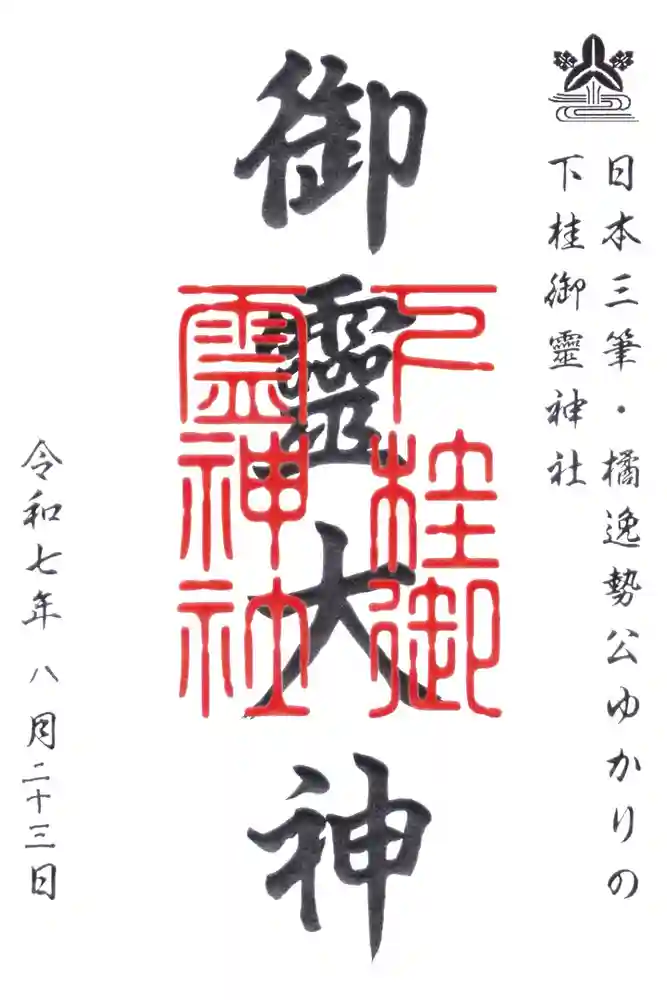 日本三筆・橘逸勢公ゆかりの
下桂御靈神社
御靈大神
下桂御
霊神社
令和七年 八月二十三日